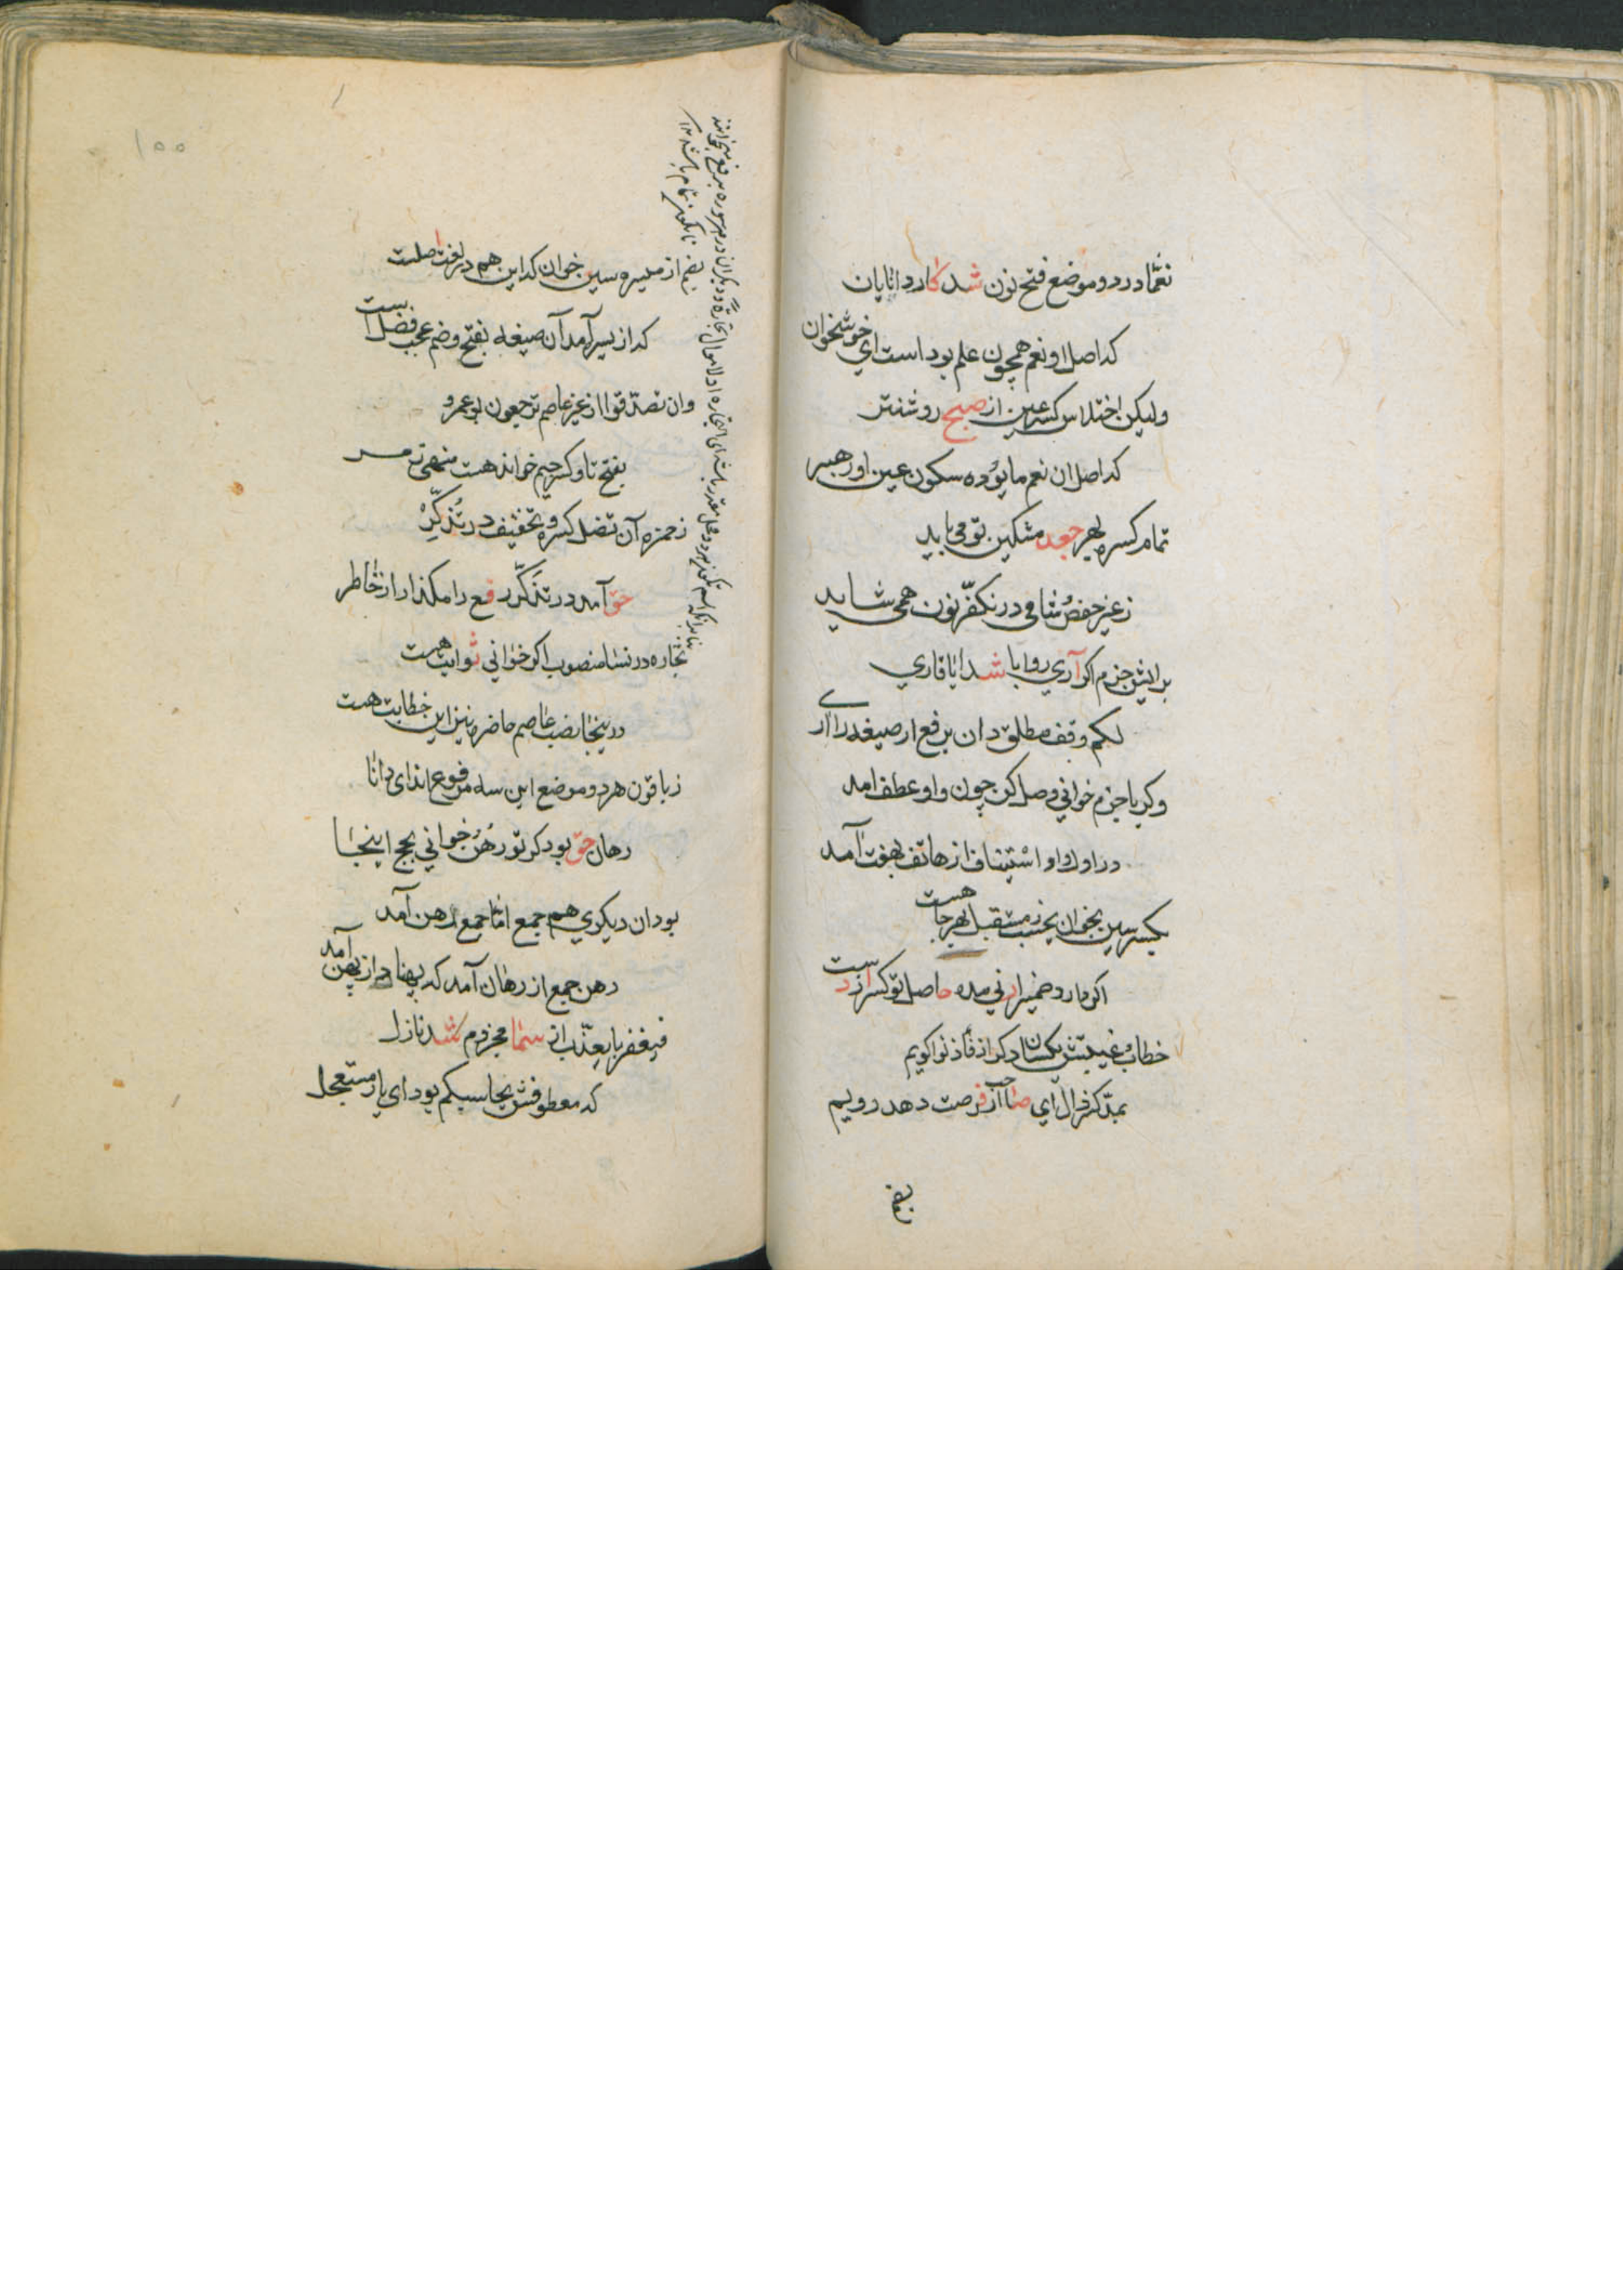 نعمّا در دو موضع فتح نون شد کار دانایان
که اصل او نعم همچون علم بود است ای خوشخوان
ولیکن اختلاس کسر عین از صبح روشنتر
که اصل ان نعم ما بوده سکون عین او رهبر
تمام کسره بهر جعد مشکین تو می باید
ز غیر حفص شامی در نکفّر نون همی شاید
برایش جزم اکر آری روا باشد ایا قاری
لکم وقف مطلق دان برفع ار صیغه را آری
وکر با جزم خوانی وصل کن چون واو عطف امد
در اول واو استیناف از هاتف بهفت آمد
بکسر سین بخوان یحسب ز مستقبل بهر جا هست
اکر دارد ضمیر ار نی مده حاصل تو کسر از دست
خطاب و غیبتش یکسان دکر از فأذنوا کویم
بمدّ کسر ذال آی صاحب از فرصت دهد رویم
بضم
بضم از میسره سین خوان که این هم در لغت اصلست
که از یسر آمد آن صیغه بفتح و ضم عجب فضل است
وان تصدّقوا از غیر عاصم ترجعون بو عمرو
بفتح تا و کسر جیم خوانده هست منهی تر مسر
ز حمزه آن تضل کسره و تخفیف در تذکّر
حق آمد در تذکّر رفع را مکذار از خاطر
تجاره در نسا منصوب اکر خوانی ثوابت هست
در ینجا نصب عاصم حاضره نیز این خطابت هست
ز باقون هر دو موضع این سه مرفوع اند ای دانا
رهان حق بود کر تو رهن خوانی بجح اینجا
بود ان دیکری هم جمع امّا جمع رهن آمد
رهن جمع از رهان آمد که پهنا دراز پهن آمد
فیغفر با یعذّب از سما مجزوم شد نازل
که معطوفش یحاسبکم بود ای یار مستعجل